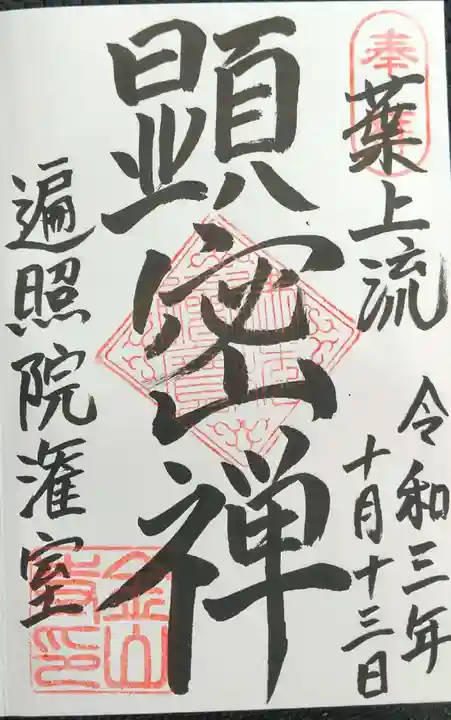 奉拝
葉上流
令和三年
十月十三日
顕密禅
遍照院灌室
金山
寺印